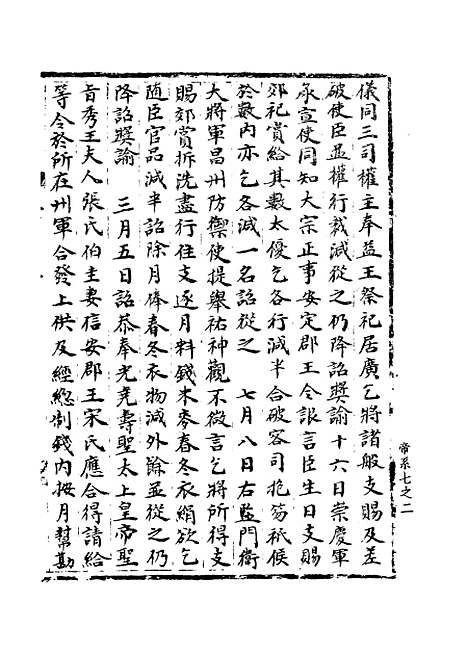 儀同三司權主奉益王祭祀居廣乞將諸般支賜及差
破使臣並權行裁減從之仍降詔獎諭十六日崇慶軍
承宣使同知大宗正事安定郡王令詪言臣生日支賜
郊祀賞給其數太優乞各行減半合破客司抱笏祇候
於數内亦乞各減一名詔從之　七月八日右監門衛
大將軍昌州防禦使提舉祐神觀不微言乞將所得支
賜郊賞拆洗盡行住支逐月料錢米麥春冬衣絹欲乞
隨臣官品減半詔除月俸春冬衣物減外餘並從之仍
降詔獎諭　三月五日詔恭奉光堯壽聖太上皇帝聖
旨秀王夫人張氏伯圭妻信安郡王宋氏應合得請給
等令於所在州軍合發上供及經總制錢内按月幫勘
帝系七之二